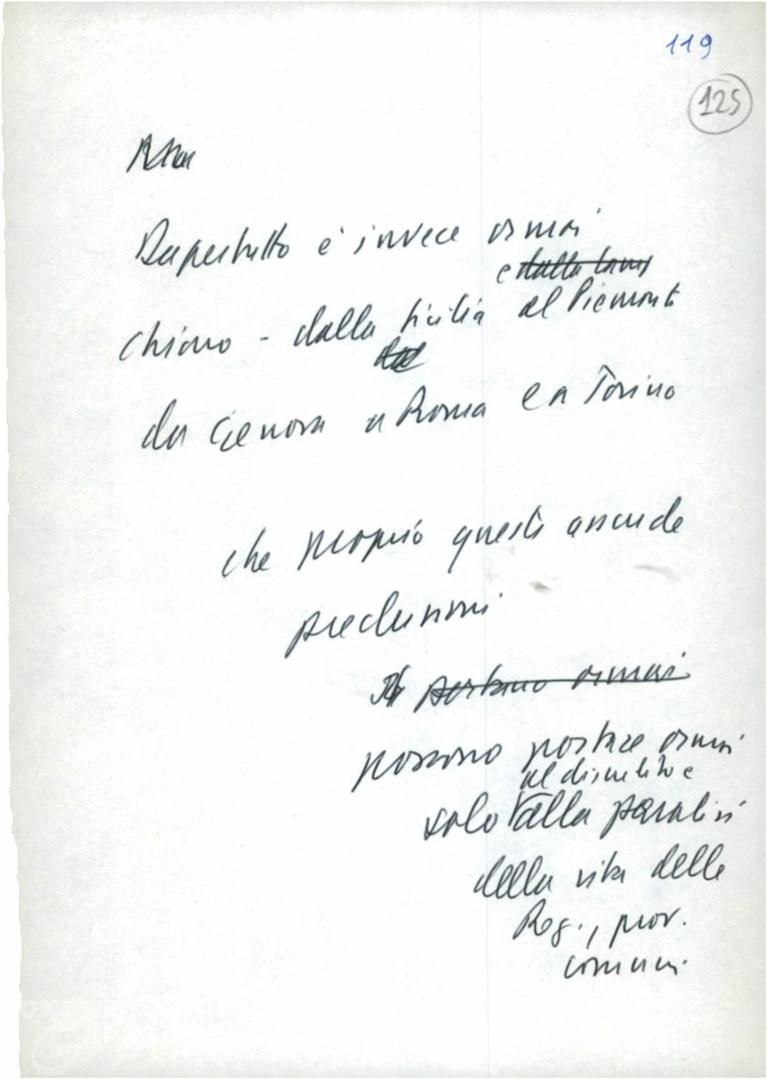 119
125
Dapertutto è invece ormai
e dalla
chiaro - dalla Sicilia al Piemonte
da Genova a Roma e a Torino
che proprio queste assurde
preclusioni
portano ormai
possono portare ormai
al discredito e
solo alla paralisi
della vita delle
Reg., prov.
comuni.